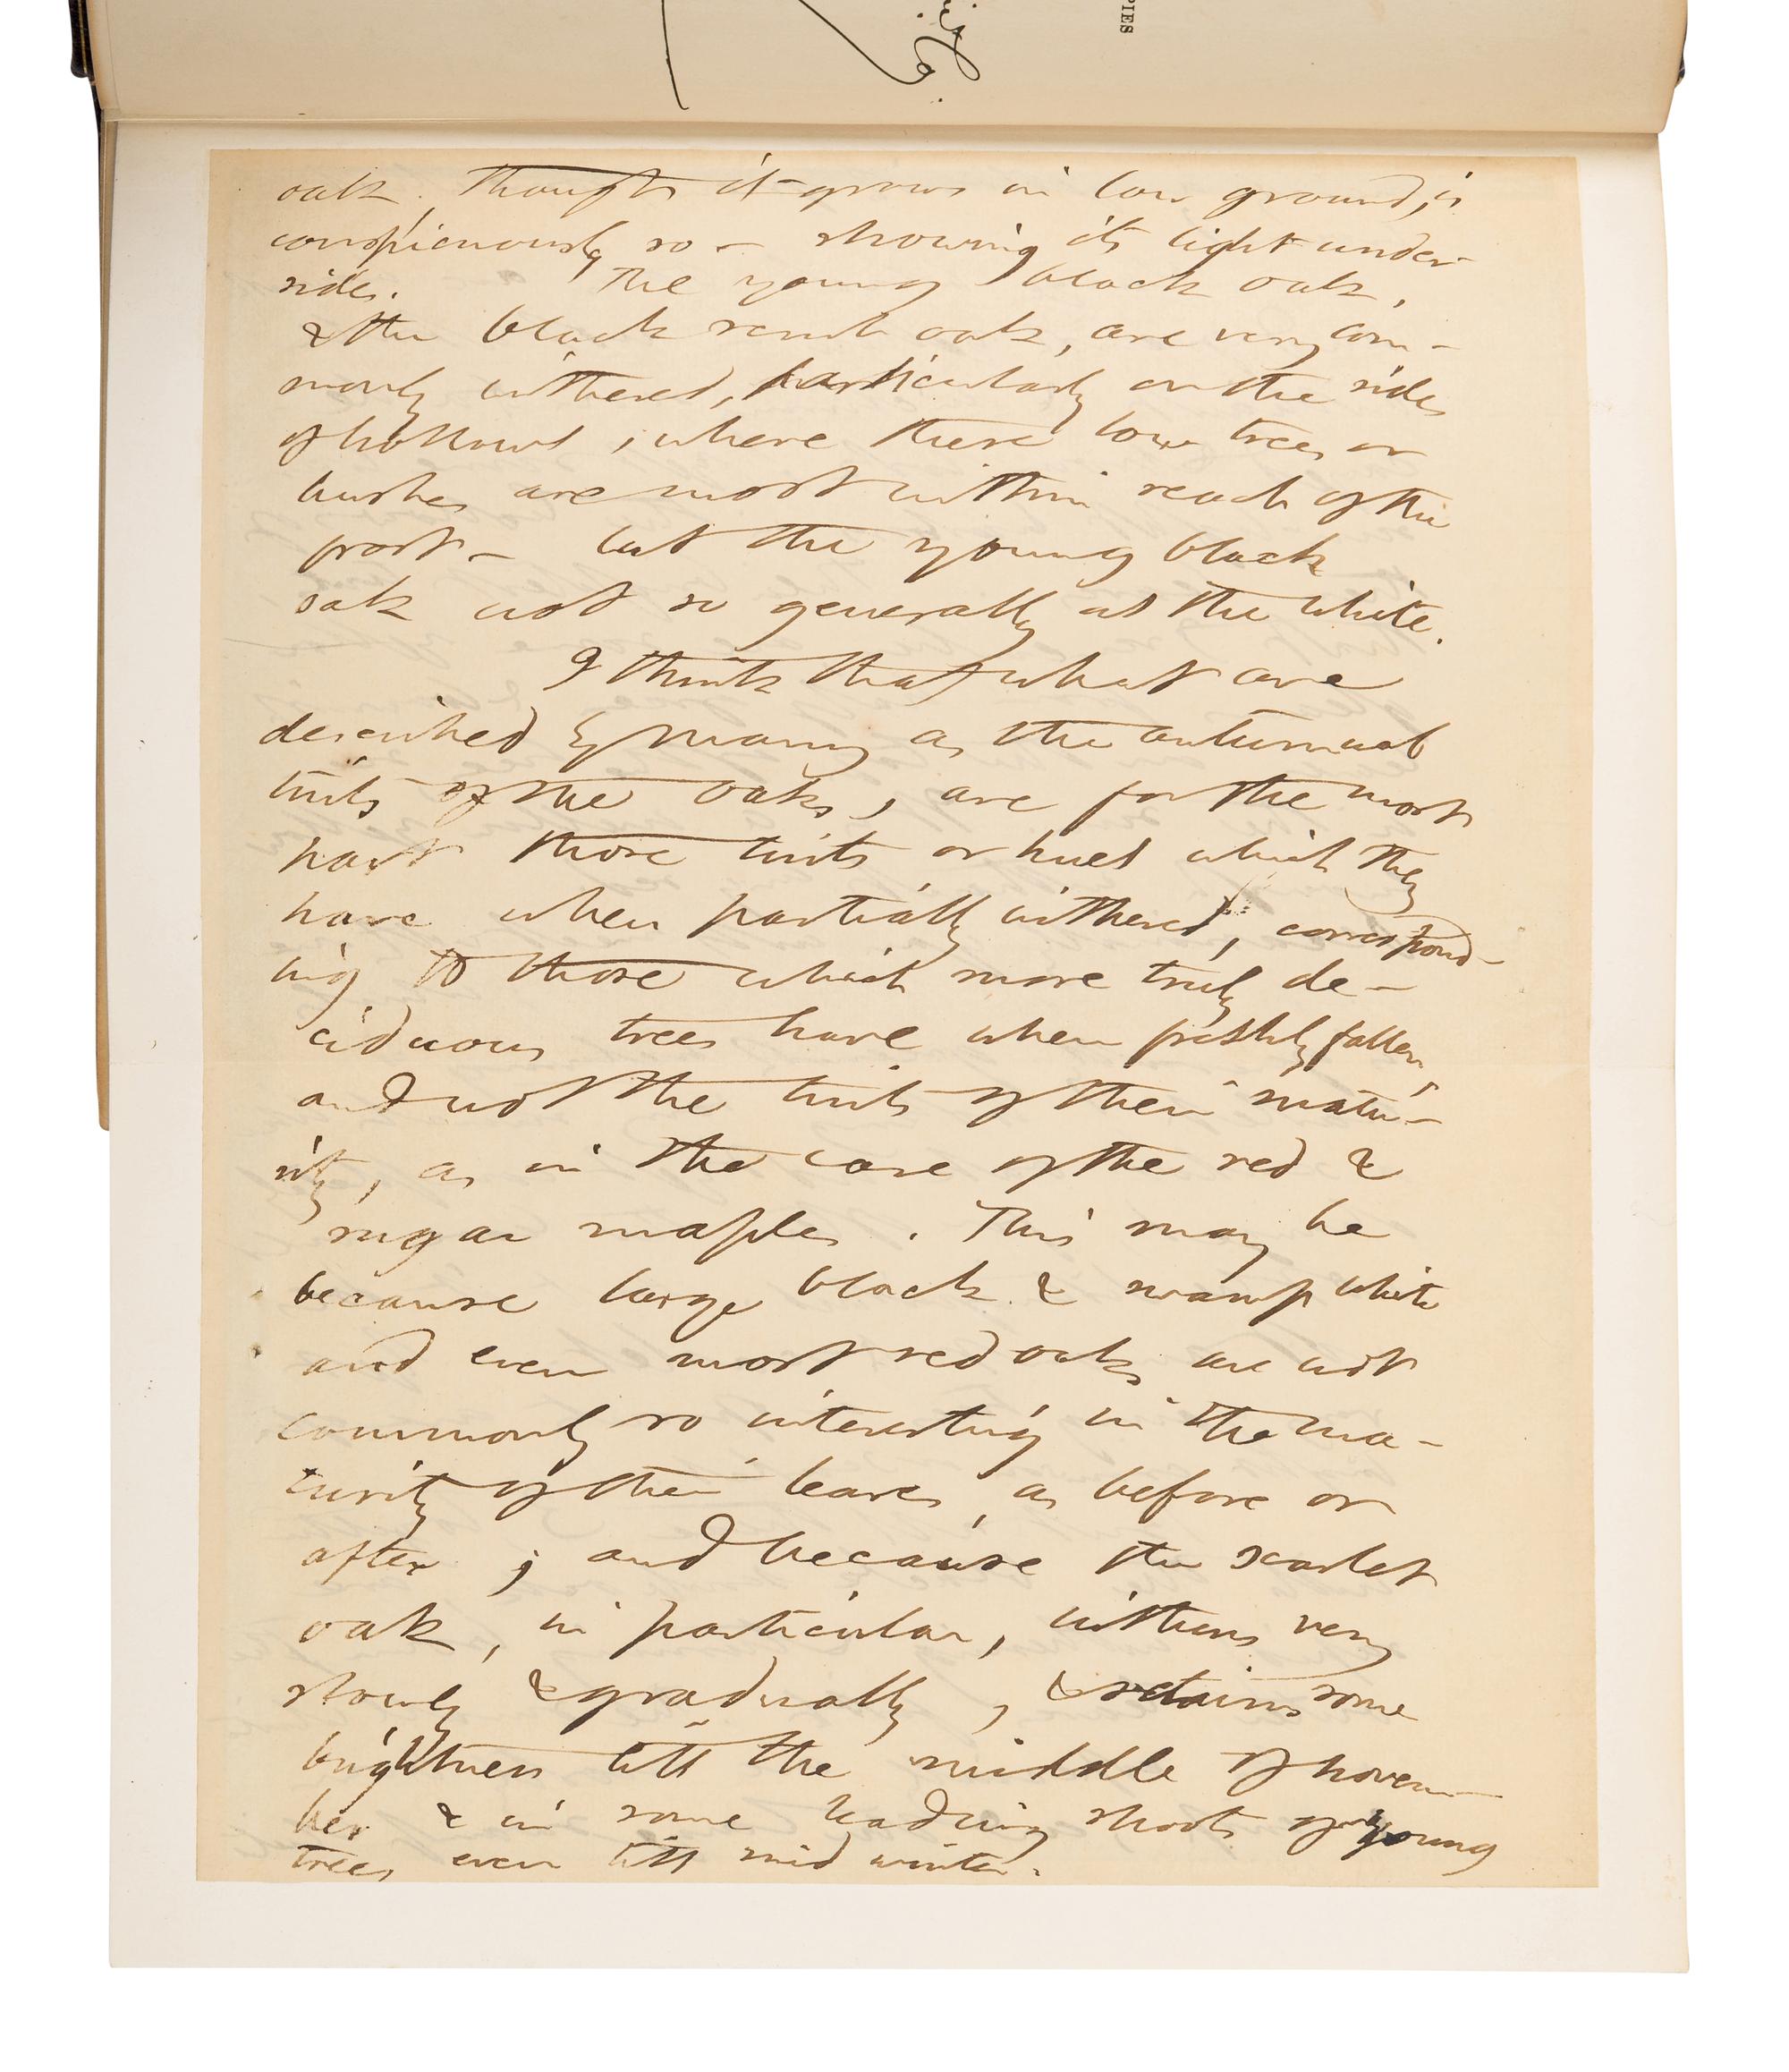 PIES
oak, though it grows in low ground, is
conspicuously so – showing its light under
sides. The young black oak,
& the black scrub oak, are very com–
monly withered, particularly on the sides
of hollows, where these low trees or
bushes are most within reach of the
frost – but the young black
oak not so generally as the white.
I think that what are
described by many as the autumnal
tints of the oaks, are for the most
part those tints or hues which they
have when partially withered, correspond–
ing to those which more truly de–
ciduous trees have when freshly fallen,
and not the tints of their matu–
rity, as in the case of the red &
sugar maples. This may be
because large black & swamp white
and even most red oaks are not
commonly so interesting in the ma–
turity of their leaves, as before or
after; and because the scarlet
oak, in particular, withers very
slowly & gradually, & retains some
brightness till the middle of novem–
ber & in some leading shoots of young
trees even till mid winter.